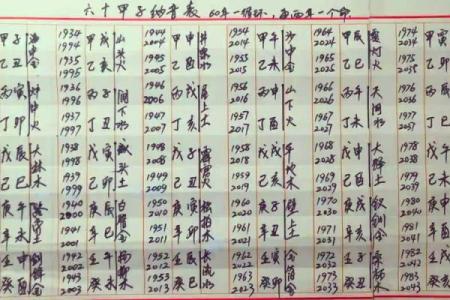 六十甲子纳音表 60年一循环，每两年一个命
甲子 海中金 1934 1994 甲戌 山头火 1944 2004 甲申 井泉水 1954 2014 甲午 沙中金 1964 2024 甲辰 覆灯火 1974 2034 甲寅
乙丑 1935 1995 乙亥 1945 2005 乙酉 1955 2015 乙未 1965 2025 乙巳 1975 2035 乙卯
丙寅 炉中火 1936 1996 丙子 涧下水 1946 2006 丙戌 屋上土 1956 2016 丙申 山下火 1966 2026 丙午 天河水 1976 2036 丙辰
丁卯 1937 1997 丁丑 1947 2007 丁亥 1957 2017 丁酉 1967 2027 丁未 1977 2037 丁巳
戊辰 大林木 1938 1998 戊寅 城头土 1948 2008 戊子 霹雳火 1958 2018 戊戌 平地木 1968 2028 戊申 大驿土 1978 2038 戊午
己巳 1939 1999 己卯 1949 2009 己丑 1959 2019 己亥 1969 2029 己酉 1979 2039 己未
庚午 1940 2000 庚辰 白蜡金 1950 2010 庚寅 松柏木 1960 2020 庚子 壁上土 1970 2030 庚戌 钗钏金 1980 2040 庚申
辛未 1941 2001 辛巳 1951 2011 辛卯 1961 2021 辛丑 1971 2031 辛亥 1981 2041 辛酉
壬申 剑锋金 1942 2002 壬午 杨柳木 1952 2012 壬辰 长流水 1962 2022 壬寅 金箔金 1972 2032 壬子 桑柘木 1982 2042 壬戌
癸酉 1943 2003 癸未 1953 2013 癸巳 1963 2023 癸卯 1973 2033 癸丑 1983 2043 癸亥